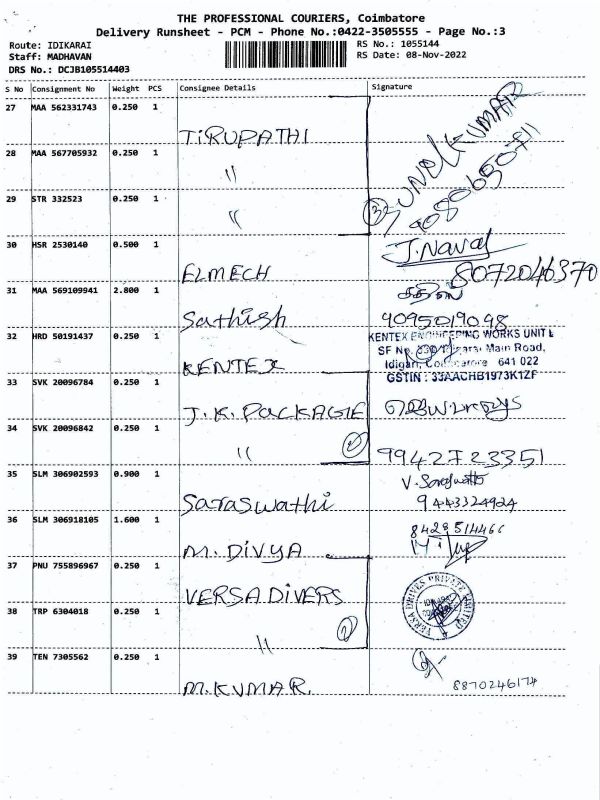 THE PROFESSIONAL COURIERS, Coimbatore
Delivery Runsheet - PCM - Phone No.:0422-3505555 - Page No.:3
Route: IDIKARAI
RS No.: 1055144
Staff: MADHAVAN
RS Date: 08-Nov-2022
DRS No.: DCJB105514403
S No Consignment No Weight PCS Consignee Details Signature
27 MAA 562331743 0.250 1
TiRUPATHI
SUNEL KUMAR
28 MAA 567705932 0.250 1
"
29 STR 332523 0.250 1
" 3
30 HSR 2530140 0.500 1
J. Naval
ELMECH 8072046370
31 MAA 569109941 2.800 1
Sathish 9095019098
32 HRD 50191437 0.250 1
KENTEX ENGINEERING WORKS UNIT I
Main Road,
Idigarai, Coimbatore 641 022
KENTEX
33 SVK 20096784 0.250 1
GSTIN : 33AACHB1973K1ZF
J.K. PACKAGIE
34 SVK 20096842 0.250 1
" 2 9942723351
35 SLM 306902593 0.900 1
V. Saraswathi
Saraswathi 9443324924
36 SLM 306918105 1.600 1
M. DIVYA
37 PNU 755896967 0.250 1
VERSA DIVERS
VERSA DRIVES PRIVATE LIMITED
38 TRP 6304018 0.250 1
" 2
39 TEN 7305562 0.250 1
M. KUMAR. 8870246174